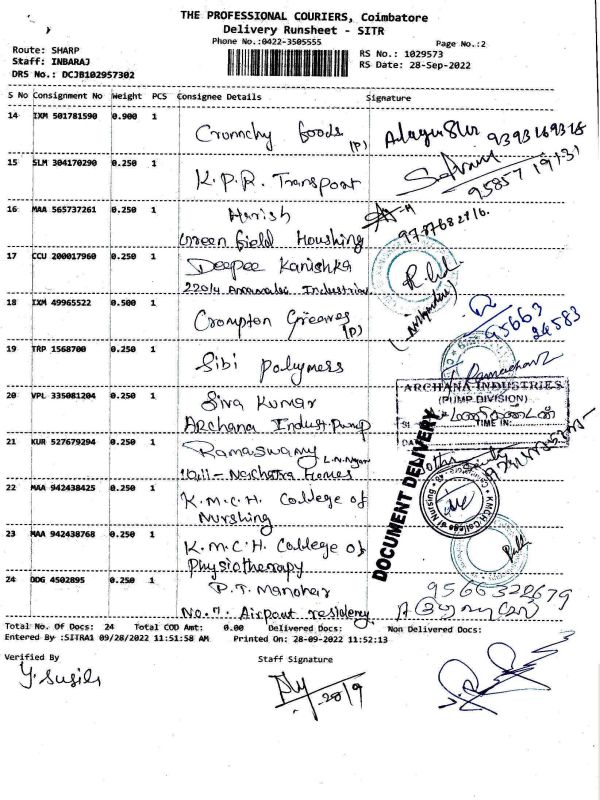 THE PROFESSIONAL COURIERS, Coimbatore
Delivery Runsheet - SITR
Phone No.:0422-3505555
Page No.:2
Route: SHARP
Staff: INBARAJ
DRS No.: DCJB102957302
RS No.: 1029573
RS Date: 28-Sep-2022
S No Consignment No Weight PCS Consignee Details Signature
14 IXM 501781590 0.900 1
Crunnchy foods (P)
9393169318
15 SLM 304170290 0.250 1
K.P.R. Transport
95857 19131
16 MAA 565737261 0.250 1
Harish
Green field Houshing
17 CCU 200017960 0.250 1
Deepee Kanishka
18 IXM 49965522 0.500 1
Crompton Greaves (P)
95663
24583
19 TRP 1568700 0.250 1
Sibi Polymers
20 VPL 335081204 0.250 1
Siva Kumar
Archana Indust.Pump
ARCHANA INDUSTRIES
(PUMP DIVISION)
TIME IN:
21 KUR 527679294 0.250 1
Ramaswamy
DOCUMENT DELIVERY
22 MAA 942438425 0.250 1
K.M.C.H. College of
Nurshing
KMCH College of Nursing
23 MAA 942438768 0.250 1
K.M.C.H. College of
Physiotherapy
24 DDG 4502895 0.250 1
P.T. Manoher
No.7. Airpout residency
9566322679
Total No. Of Docs: 24 Total COD Amt: 0.00 Delivered Docs: Non Delivered Docs:
Entered By :SITRA1 09/28/2022 11:51:58 AM Printed On: 28-09-2022 11:52:13
Verified By
Staff Signature
Y. Susila
28/9